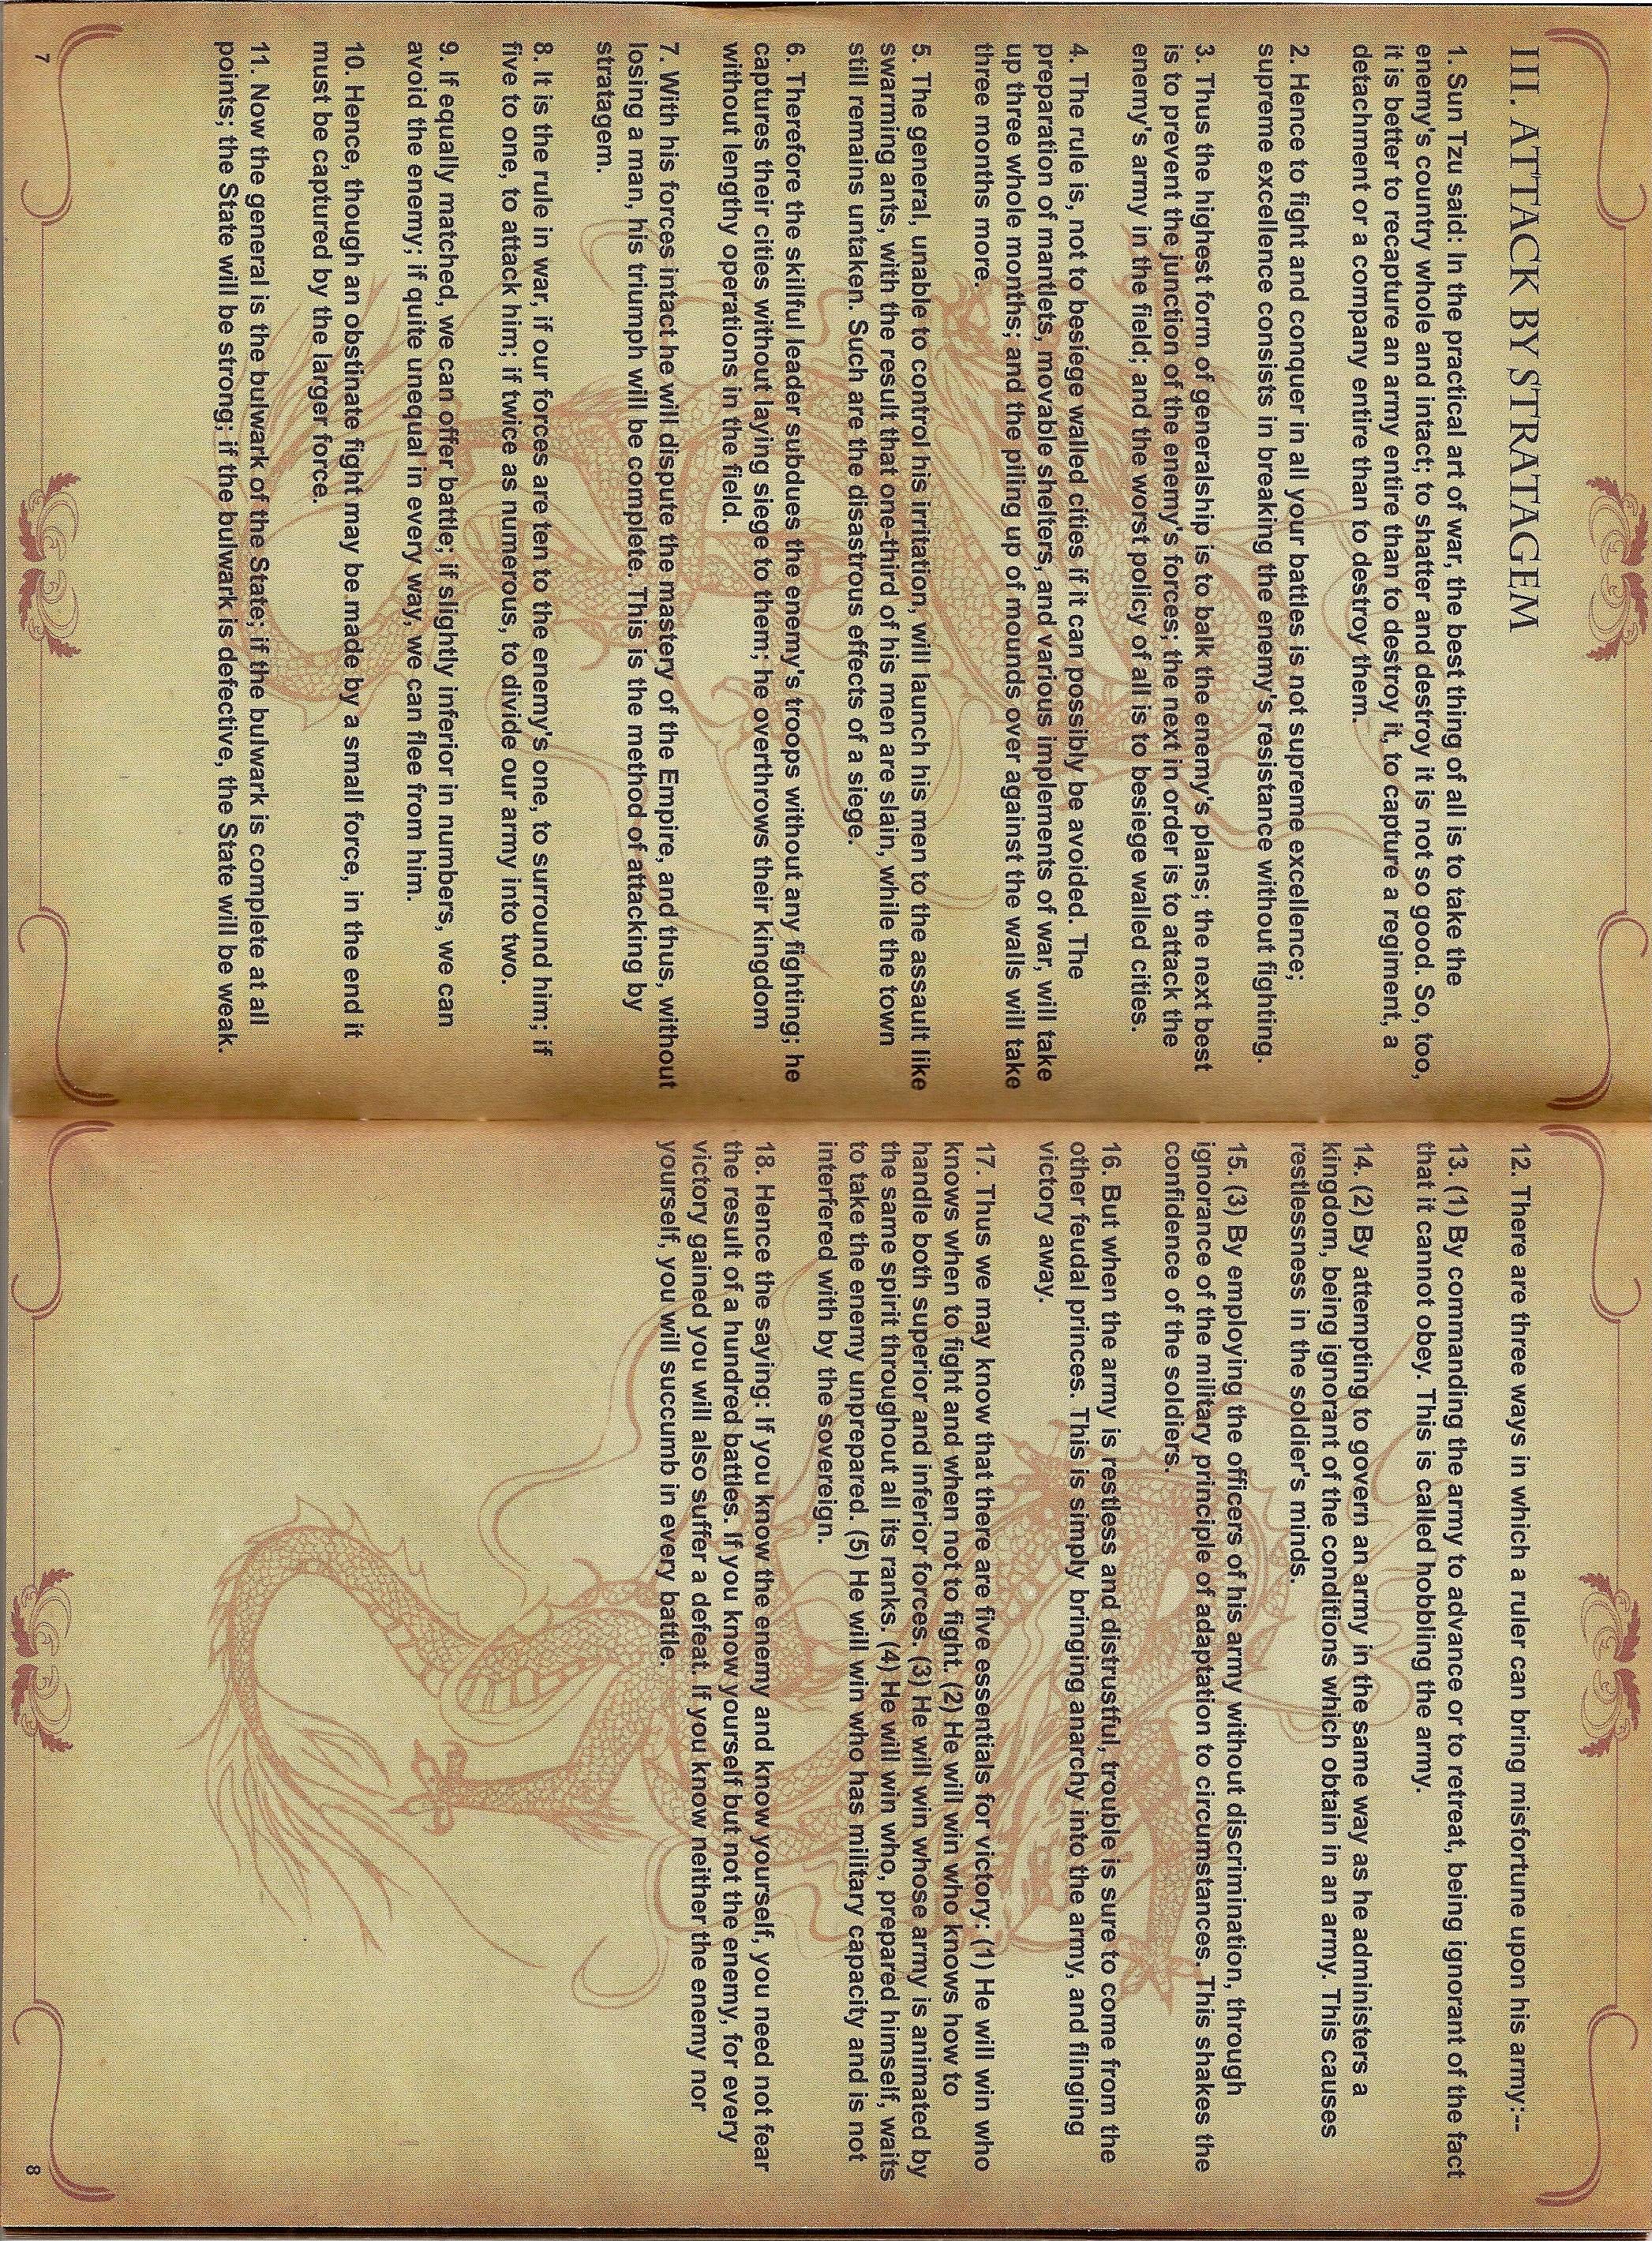 III. ATTACK BY STRATAGEM
1. Sun Tzu said: In the practical art of war, the best thing of all is to take the
enemy's country whole and intact; to shatter and destroy it is not so good. So, too,
it is better to recapture an army entire than to destroy it, to capture a regiment, a
detachment or a company entire than to destroy them.
2. Hence to fight and conquer in all your battles is not supreme excellence;
supreme excellence consists in breaking the enemy's resistance without fighting.
3. Thus the highest form of generalship is to balk the enemy's plans; the next best
is to prevent the junction of the enemy's forces; the next in order is to attack the
enemy's army in the field; and the worst policy of all is to besiege walled cities.
4. The rule is, not to besiege walled cities if it can possibly be avoided. The
preparation of mantlets, movable shelters, and various implements of war, will take
up three whole months; and the piling up of mounds over against the walls will take
three months more.
5. The general, unable to control his irritation, will launch his men to the assault like
swarming ants, with the result that one-third of his men are slain, while the town
still remains untaken. Such are the disastrous effects of a siege.
6. Therefore the skillful leader subdues the enemy's troops without any fighting; he
captures their cities without laying siege to them; he overthrows their kingdom
without lengthy operations in the field.
7. With his forces intact he will dispute the mastery of the Empire, and thus, without
losing a man, his triumph will be complete. This is the method of attacking by
stratagem.
8. It is the rule in war, if our forces are ten to the enemy's one, to surround him; if
five to one, to attack him; if twice as numerous, to divide our army into two.
9. If equally matched, we can offer battle; if slightly inferior in numbers, we can
avoid the enemy; if quite unequal in every way, we can flee from him.
10. Hence, though an obstinate fight may be made by a small force, in the end it
must be captured by the larger force.
11. Now the general is the bulwark of the State; if the bulwark is complete at all
points; the State will be strong; if the bulwark is defective, the State will be weak.
7
12. There are three ways in which a ruler can bring misfortune upon his army:--
13. (1) By commanding the army to advance or to retreat, being ignorant of the fact
that it cannot obey. This is called hobbling the army.
14. (2) By attempting to govern an army in the same way as he administers a
kingdom, being ignorant of the conditions which obtain in an army. This causes
restlessness in the soldier's minds.
15. (3) By employing the officers of his army without discrimination, through
ignorance of the military principle of adaptation to circumstances. This shakes the
confidence of the soldiers.
16. But when the army is restless and distrustful, trouble is sure to come from the
other feudal princes. This is simply bringing anarchy into the army, and flinging
victory away.
17. Thus we may know that there are five essentials for victory: (1) He will win who
knows when to fight and when not to fight. (2) He will win who knows how to
handle both superior and inferior forces. (3) He will win whose army is animated by
the same spirit throughout all its ranks. (4) He will win who, prepared himself, waits
to take the enemy unprepared. (5) He will win who has military capacity and is not
interfered with by the sovereign.
18. Hence the saying: If you know the enemy and know yourself, you need not fear
the result of a hundred battles. If you know yourself but not the enemy, for every
victory gained you will also suffer a defeat. If you know neither the enemy nor
yourself, you will succumb in every battle.
8